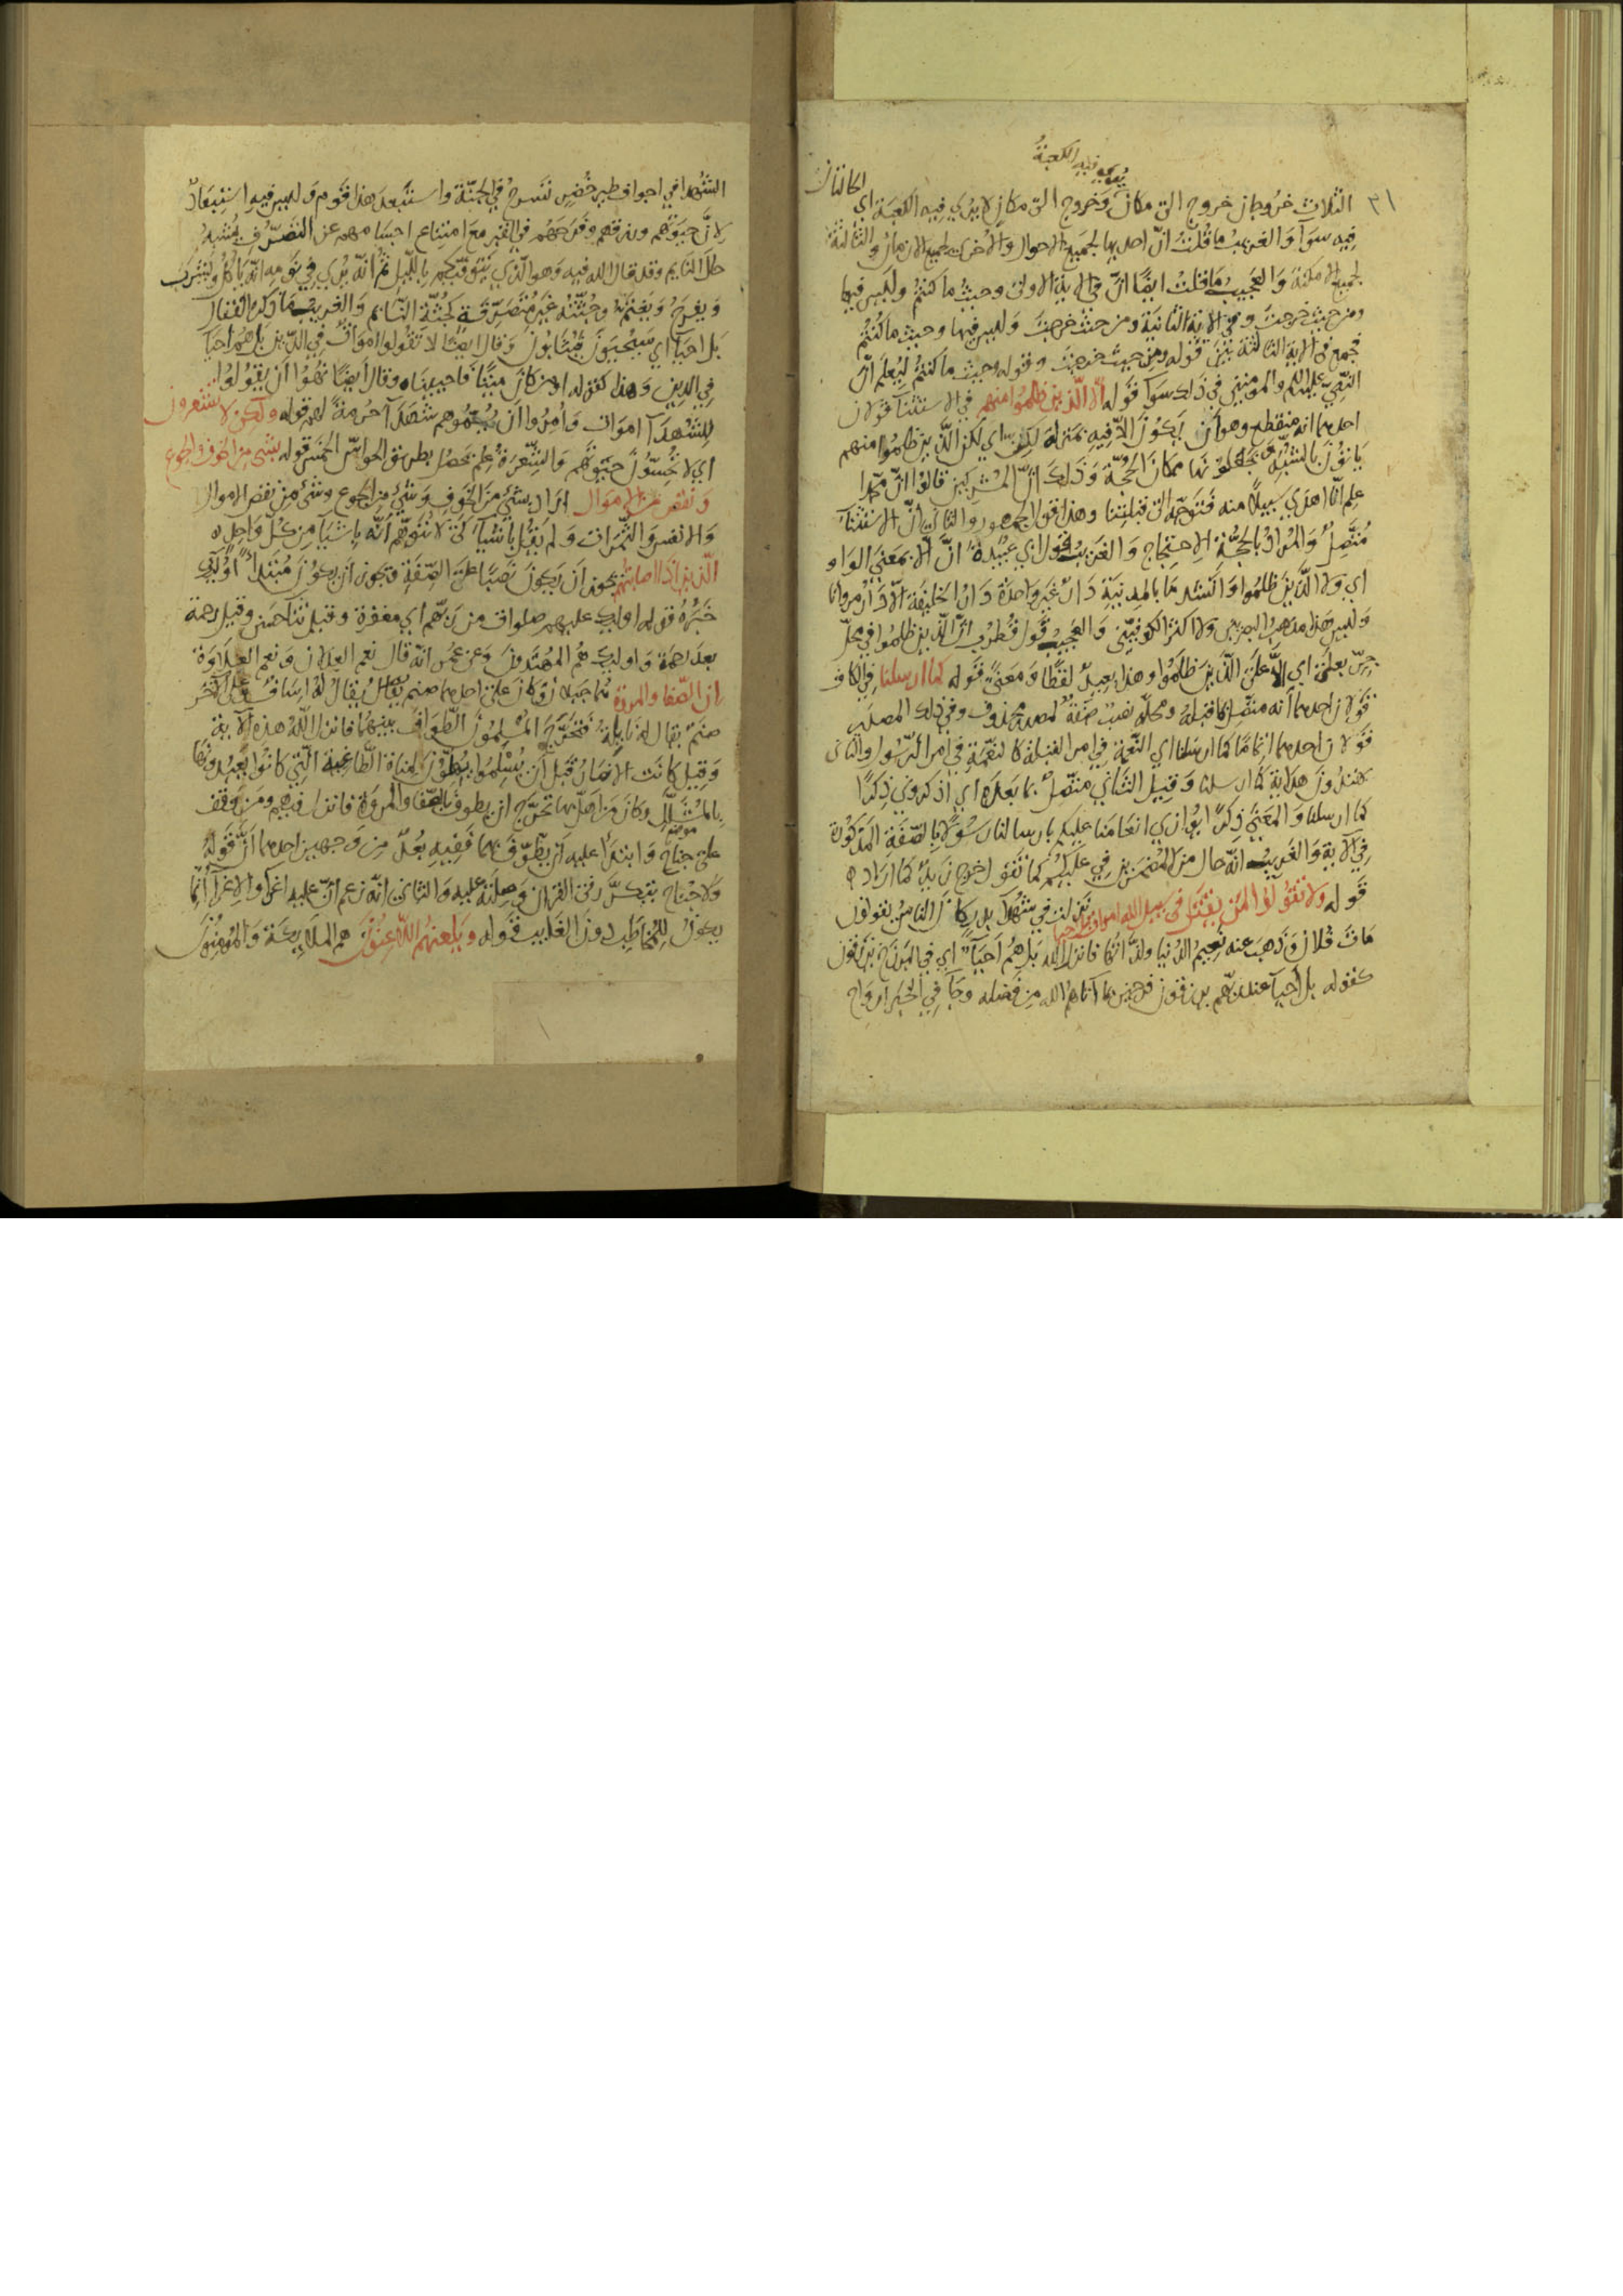 يرى فيه الكعبة
٣١
الثلاث خروجان خروج الى مكان وخروج الى مكان لا يرى فيه الكعبة اي الحالتان
فيه سوآ والغريب ما قلت انّ احديها لجميع الاحوال والاخرى لجميع الازمان والثالثة
لجميع الامكنة والعجيب ما قلت ايضًا انّ في الآية الاولى وحيث ما كنتم وليس فيها
ومن حيث خرجت وفي الآية الثانية ومن حيث خرجت وليس فيها وحيث ما كنتم
فجمع في الآية الثالثة بين قوله ومن حيث خرجت وقوله وحيث ما كنتم ليعلم انّ
النبيّ عليه السلم والمومنين في ذلك سوآ قوله الّا الذين ظلموا منهم في الاستثنا قولان
احدهما انه منقطع وهو ان يكون الّا فيه بمنزلة لكن اي لكن الذين ظلموا منهم
ياتون بالشبه فيجعلونها مكان الحجّة وذلك انّ المشركين قالوا انّ محمّدا
علم انّا اهدى سبيلا منه فتوجّه الى قبلتنا وهذا قول الجمهور والثاني انّ الاستثنآ
متّصل والمراد بالحجّة الاحتجاج والغريب قول ابي عبيدة انّ الّا بمعنى الواو
اي ولا الذين ظلموا وانشد ما بالمدينة دار غير واحدة دار الخليفة الّا دار مروانا
وليس هذا مذهب البصريين ولا اكثر الكوفيين والعجيب قول قطرب الّا الذين ظلموا في محلّ
جرّ بعلى اي الّا على الذين ظلموا وهذا بعيد لفظًا ومعنى قوله كما ارسلنا في الكاف
قولان احدهما انه متّصل بما قبله ومحلّه نصب صفة لمصدر محذوف وفي ذلك المصدر
قولان احدهما اتماما كما ارسلنا اي النعمة في امر القبلة كالنعمة في امر الرسول والثاني
تهتدون هداية كما ارسلنا وقيل الثاني متّصل بما بعده اي اذكروني ذكرًا
كما ارسلنا والمعنى ذكرًا يوازي انعامنا عليكم بارسالنا رسولا بالصفة المذكورة
في الآية والغريب انّه حال من المضمرين في عليكم كما تقول اخرج زيد كما اراد
قوله ولا تقولوا لمن يقتل في سبيل الله اموات بل احيا نزلت في شهدآ بدر كان الناس يقولون
مات فلان وذهب عنه نعيم الدنيا ولذّاتها فانزل الله بل هم احيآ اي في البرزخ يرزقون
كقوله بل احيآ عند ربّهم يرزقون فرحين بما آتاهم الله من فضله وجآ في الخبر ارواح
الشهدا في اجواف طير خضر تسرح في الجنّة واستبعد هذا قوم وليس فيه استبعاد
لانّ حيوتهم ورزقهم وفرحهم في القبر مع امتناع اجسامهم عن التصرّف يشبه
حال النايم وقد قال الله فيه وهو الذي يتوفّيكم بالليل ثم انّه يرى في نومه انّه ياكل ويشرب
ويفرح ويغتمّ وجثّته غير متصرّفة كجثّة النايم والغريب ما ذكره القفال
بل احيآ اي سيحيون فيثابون وقال ايضًا لا تقولوا اموات في الدين بل هم احيآ
في الدين وهذا كقوله اومن كان ميتًا فاحييناه وقال ايضًا نهوا ان يقولوا
للشهدآ اموات وامروا ان يسمّوهم شهدآ حرمة لهم قوله ولكن لا تشعرون
اي لا تحسّون حيوتهم والشعر علم يحصل بطريق الحواسّ الخمس قوله بشي من الخوف والجوع
ونقص من الاموال اراد بشي من الخوف وشي من الجوع وشي من نقص الاموال
والانفس والثمرات ولم يقل باشيآ كي لا يتوهّم انّه باشيآ من كلّ واحد
الذين اذا اصابتهم يجوز ان يكون نصبًا على الصفة ويجوز ان يكون مبتدا اولئك
خبره قوله اوليك عليهم صلوات من ربّهم اي مغفرة وقيل ثنآ حسن وقيل رحمة
بعد رحمة واوليك هم المهتدون وعن عمر انّه قال نعم العدلان ونعم العلاوة
ان الصفا والمروة هما جبلان وكان على احدهما صنم يقال له اساف وعلى الآخر
صنم يقال له نايلة فتحرّج المسلمون الطواف بينهما فانزل الله هذه الآية
وقيل كانت الانصار قبل ان يسلموا يهلّون لمناة الطاغية التي كانوا يعبدونها
بالمشلّل وكان من اهلّ بها تحرّج ان يطوف بالصفا والمروة فانزل فيهم ومن وقف
على جناح وابتدا عليه ان يطّوّف بهما ففيه بعد من وجهين احدهما انّ قوله
ولا جناح يتكرّر في القرآن وصلته عليه والثاني انّه زعم انّ عليه اغرآ والاغرآ انّما
يكون للمخاطب دون الغايب قوله ويلعنهم اللّاعنون هم الملايكة والمومنون